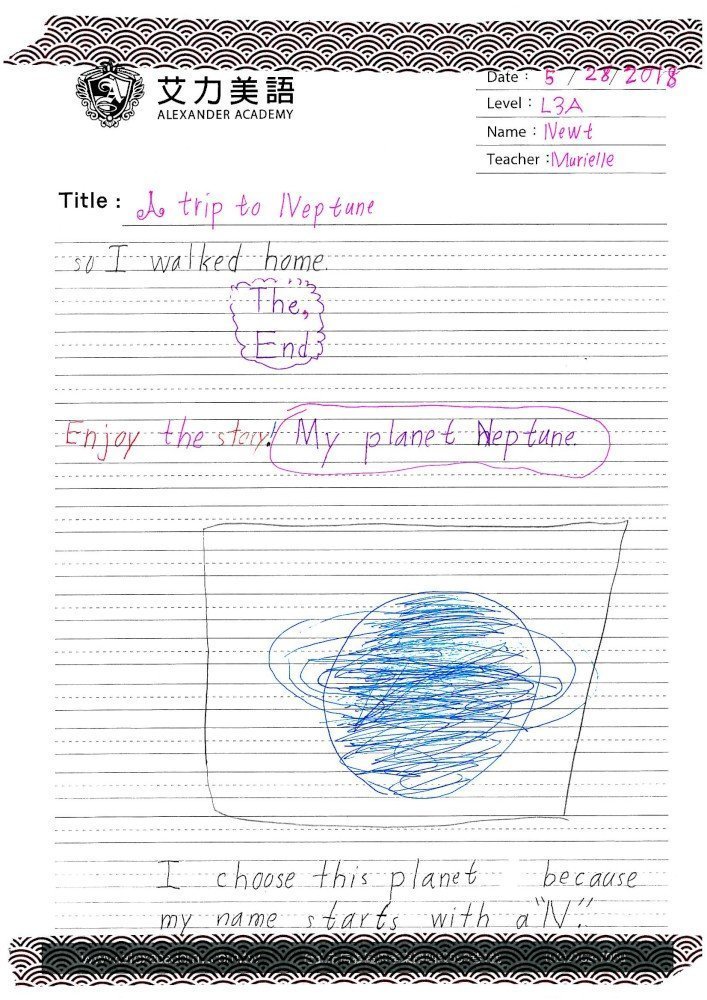 艾力美語
ALEXANDER ACADEMY
Date : 5 / 28 / 2018
Level : L3A
Name : Newt
Teacher : Murielle
Title : A trip to Neptune
so I walked home.
The,
End
Enjoy the story! My planet Neptune.
I choose this planet because
my name starts with a "N".